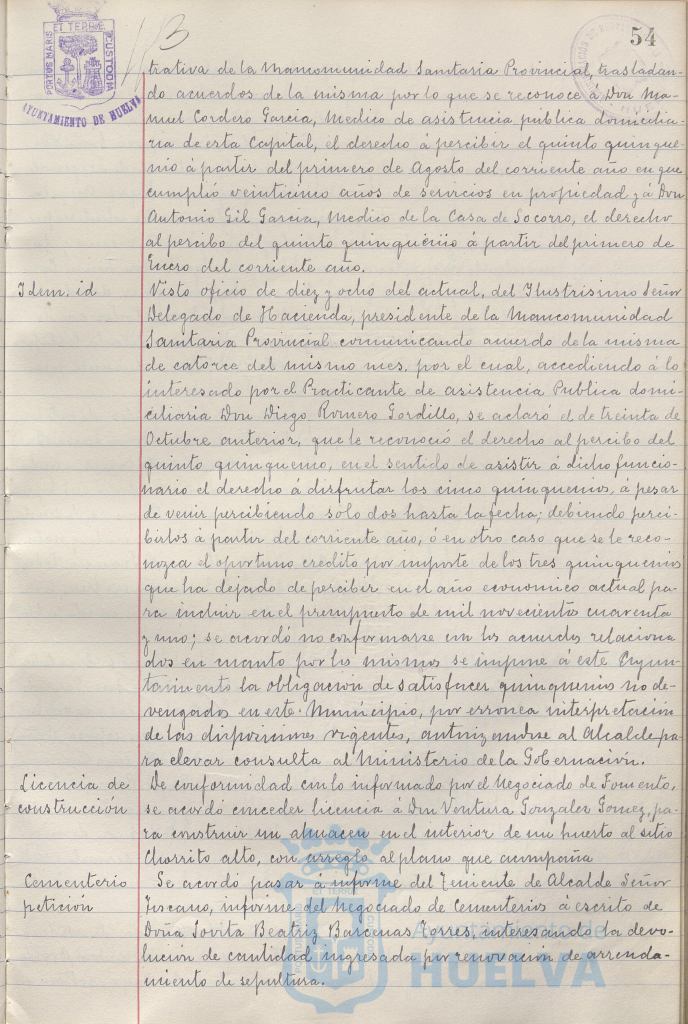 54
13
EL TERRÆ
PORTUS MARIS
CUSTODIA
AYUNTAMIENTO DE HUELVA
trativa de la Mancomunidad Sanitaria Provincial, trasladan-
do acuerdos de la misma por lo que se reconoce á Don Ma-
nuel Cordero Garcia, Medico de asistencia publica domicilia-
ria de esta Capital, el derecho á percibir el quinto quinque-
nio á partir del primero de Agosto del corriente año en que
cumplió veinticinco años de servicios en propiedad y á Don
Antonio Gil Garcia, Medico de la Casa de Socorro, el derecho
al percibo del quinto quinquenio á partir del primero de
Enero del corriente año.
Idem. id
Visto oficio de diez y ocho del actual, del Ilustrisimo Señor
Delegado de Hacienda, presidente de la Mancomunidad
Sanitaria Provincial comunicando acuerdo de la misma
de catorce del mismo mes, por el cual, accediendo á lo
interesado por el Practicante de asistencia Publica domi-
ciliaria Don Diego Romero Gordillo, se aclaró el de treinta de
Octubre anterior, que le reconoció el derecho al percibo del
quinto quinquenio, en el sentido de asistir á dicho funcio-
nario el derecho á disfrutar los cinco quinquenios, á pesar
de venir percibiendo solo dos hasta la fecha; debiendo perci-
birlos á partir del corriente año, ó en otro caso que se le reco-
nozca el oportuno credito por importe de los tres quinquenios
que ha dejado de percibir en el año economico actual pa-
ra incluir en el presupuesto de mil novecientos cuarenta
y uno; se acordó no conformarse con los acuerdos relaciona-
dos en cuanto por los mismos se impone á este Ayun-
tamiento la obligación de satisfacer quinquenios no de-
vengados en este Municipio, por erronea interpretación
de las disposiciones vigentes, autorizandose al Alcalde pa-
ra elevar consulta al Ministerio de la Gobernación.
Licencia de
construcción
De conformidad con lo informado por el Negociado de Fomento,
se acordó conceder licencia á Don Ventura Gonzalez Gomez, pa-
ra construir un almacen en el interior de un huerto al sitio
Chorrito alto, con arreglo al plano que acompaña
Cementerio
petición
Se acordó pasar á informe del Teniente de Alcalde Señor
Toscano, informe del Negociado de Cementerios á escrito de
Doña Jovita Beatriz Barcenas Torres, interesando la devo-
lución de cantidad ingresada por renovación de arrenda-
miento de sepultura.
Ayuntamiento de
HUELVA